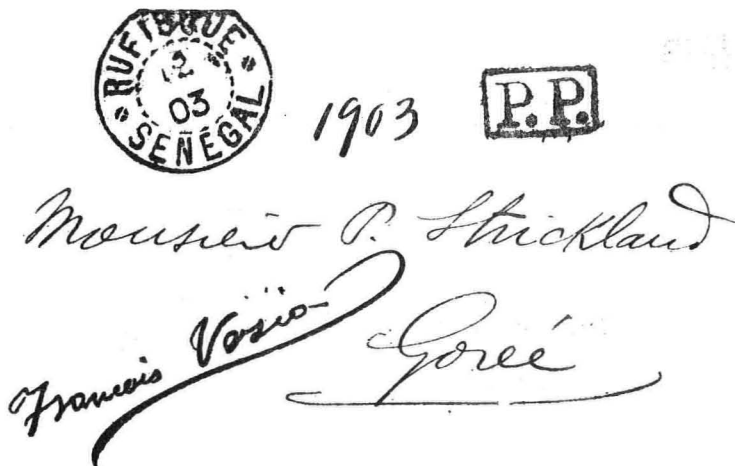 RUFISQUE
12
03
SENEGAL
1903
P.P.
Monsieur P. Strickland
François
Goreé